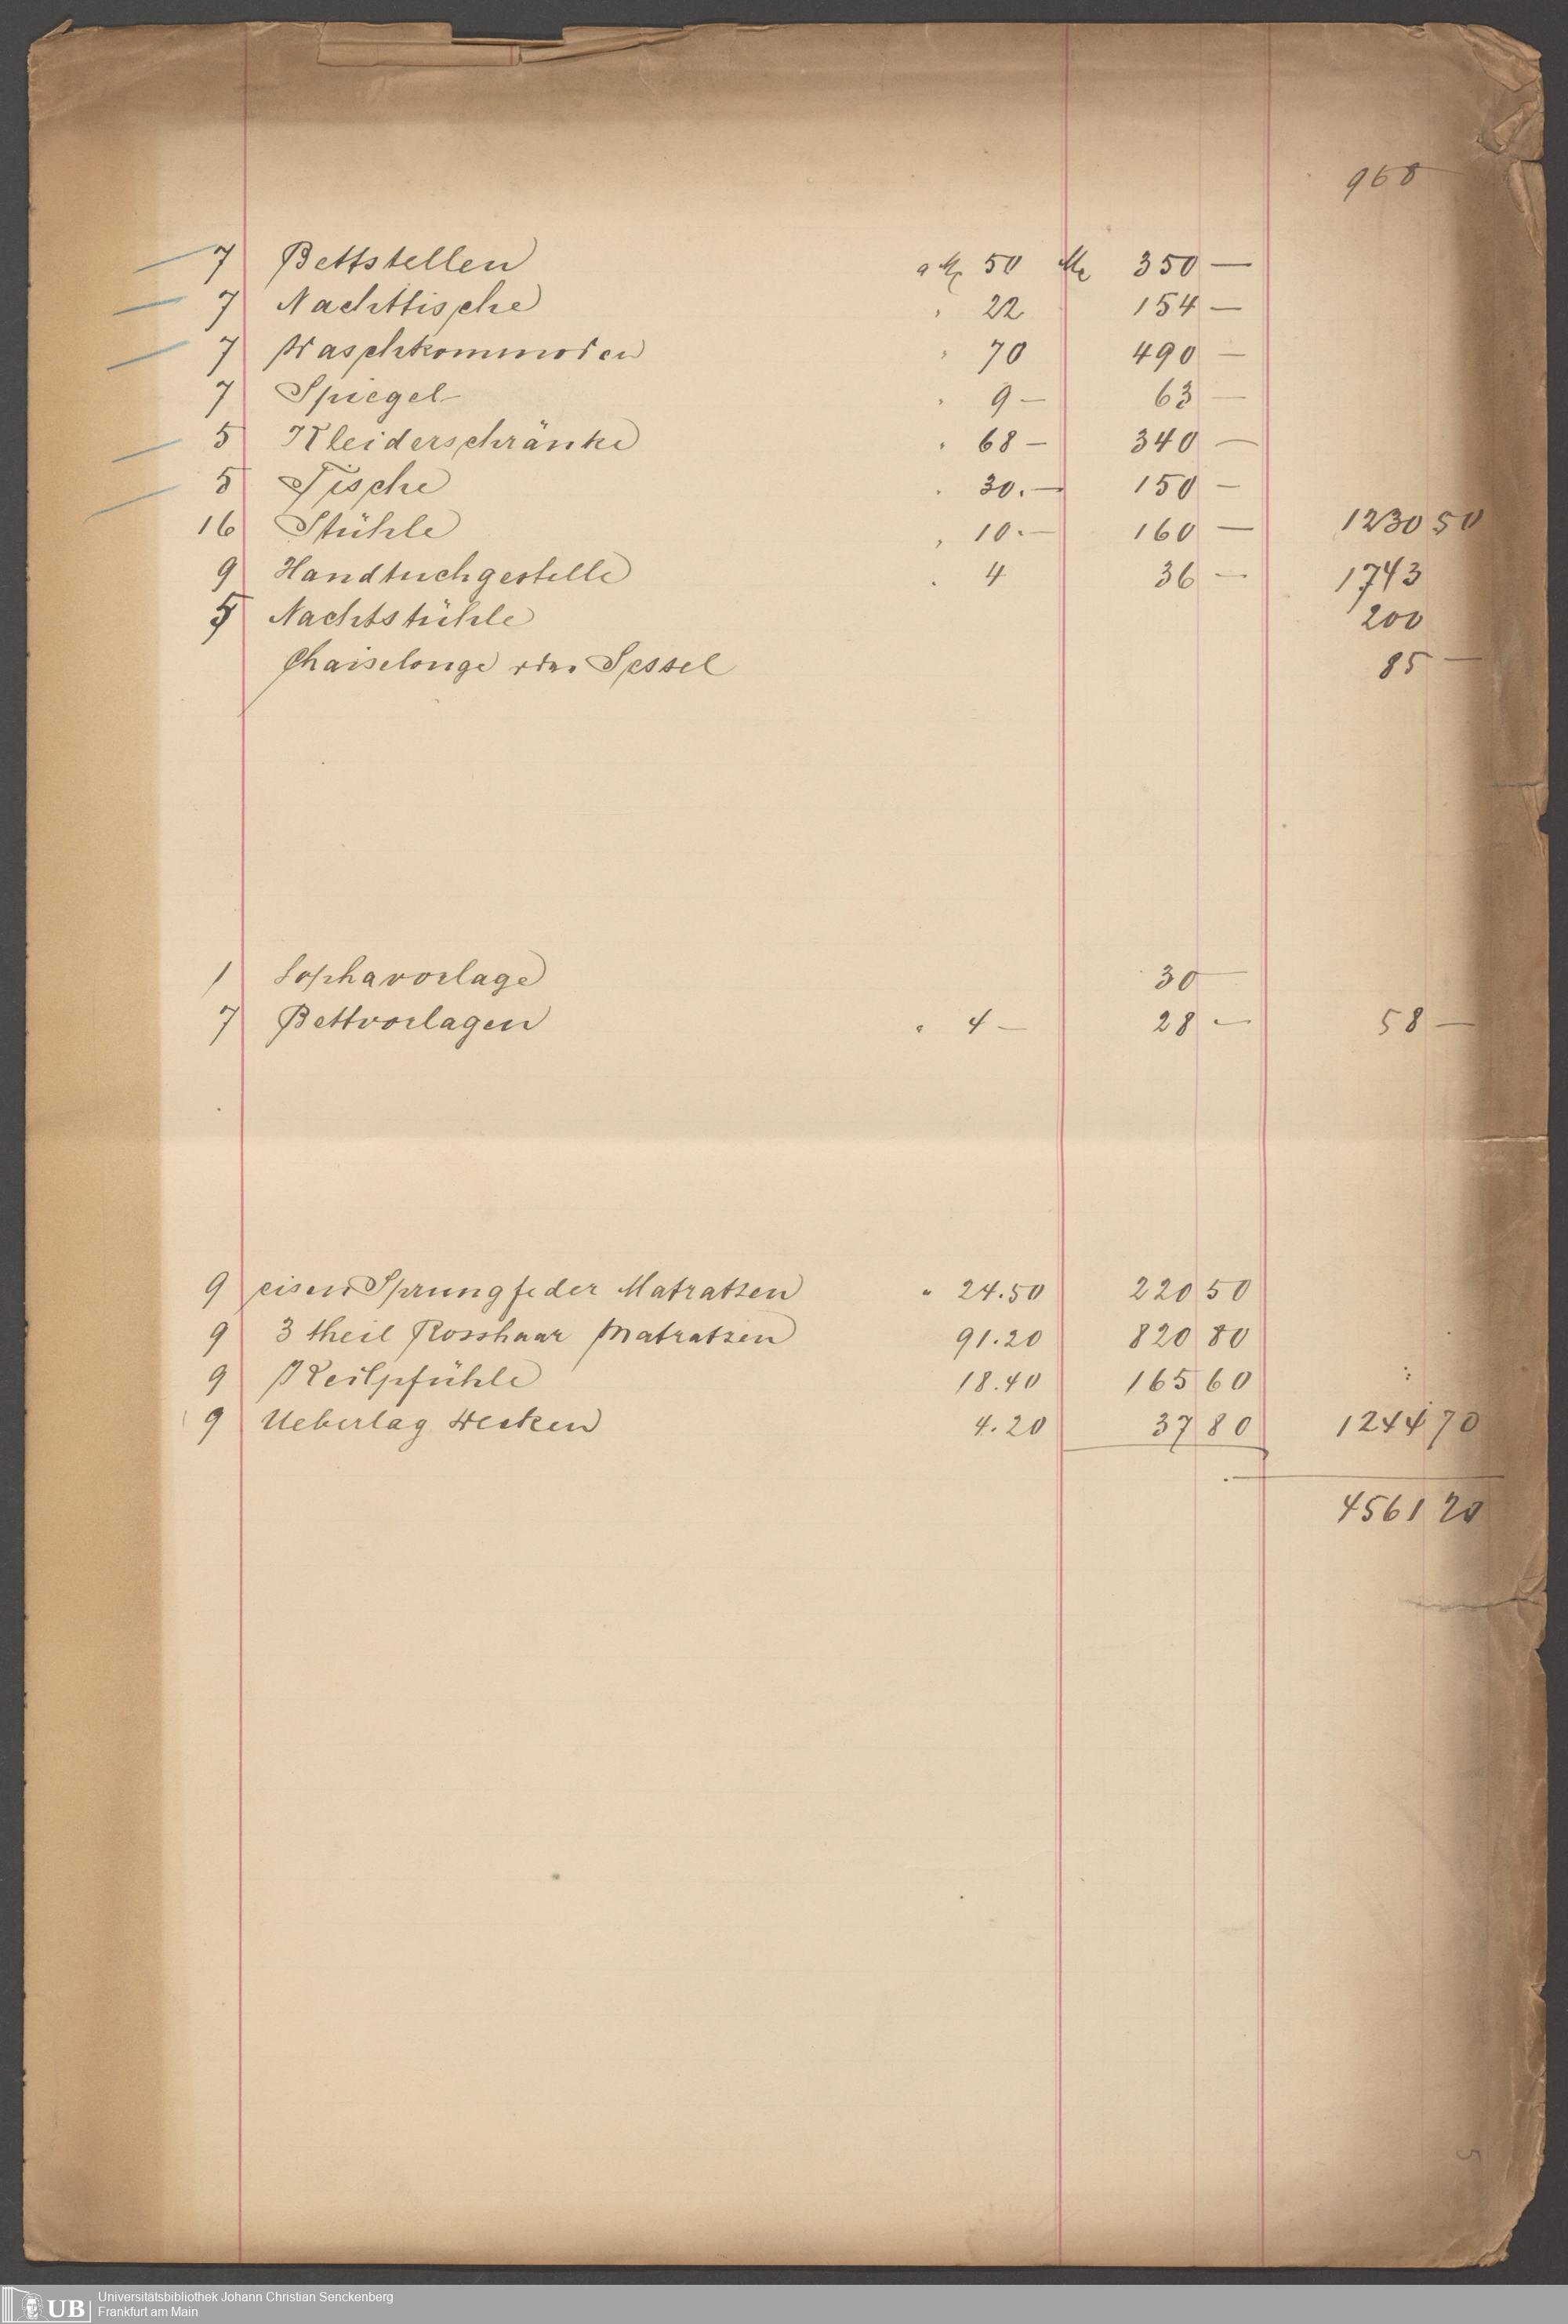 968
7 Bettstellen a M. 50 M. 350 —
7 Nachttische " 22 154 —
7 Waschkommoden " 70 490 —
7 Spiegel " 9 — 63 —
5 Kleiderschränke " 68 — 340 —
5 Tische " 30. — 150 —
16 Stühle " 10. — 160 — 1230 50
9 Handtuchgestelle " 4 36 — 1743
5 Nachtstühle 200
Chaiselonge oder Sessel 85 —
1 Sophavorlage 30 —
7 Bettvorlagen " 4 — 28 — 58 —
9 eisen Sprungfeder Matratzen " 24.50 220 50
9 3 theil Rosshaar Matratzen 91.20 820 80
9 Keilpfühle 18.40 165 60
9 Ueberlag Decken 4.20 37 80 1244 70
4561 20
5
UB
Universitätsbibliothek Johann Christian Senckenberg
Frankfurt am Main